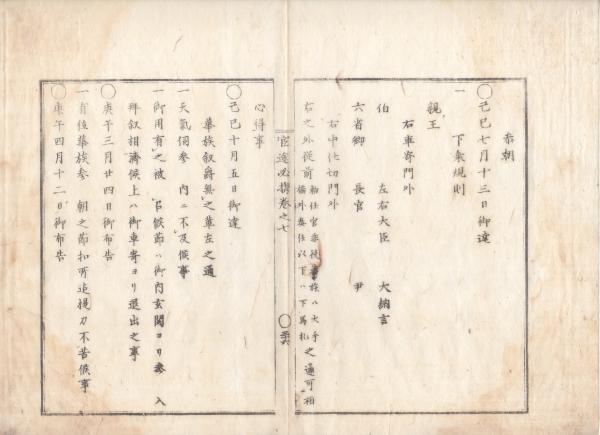 参朝
○己巳七月十三日御達
一　下乗規則
親王
右車寄門外
伯　左右大臣　大納言
六省卿　長官　尹
右中仕切門外
右之外従前勅任官並従華族ハ大手
橋外奏任以下ハ下馬札之通可相
心得事
官途必携巻之七
○己巳十月五日御達
華族叙爵無之輩左之通
一天気伺参　内ニ不及候事
一御用有之被召候節ハ御内玄関ヨリ参入
拝叙相済候上ハ御車寄ヨリ退出之事
○庚午三月廿四日御布告
一有位華族参　朝之節扣所迄提刀不苦候事
○庚午四月十二日御布告